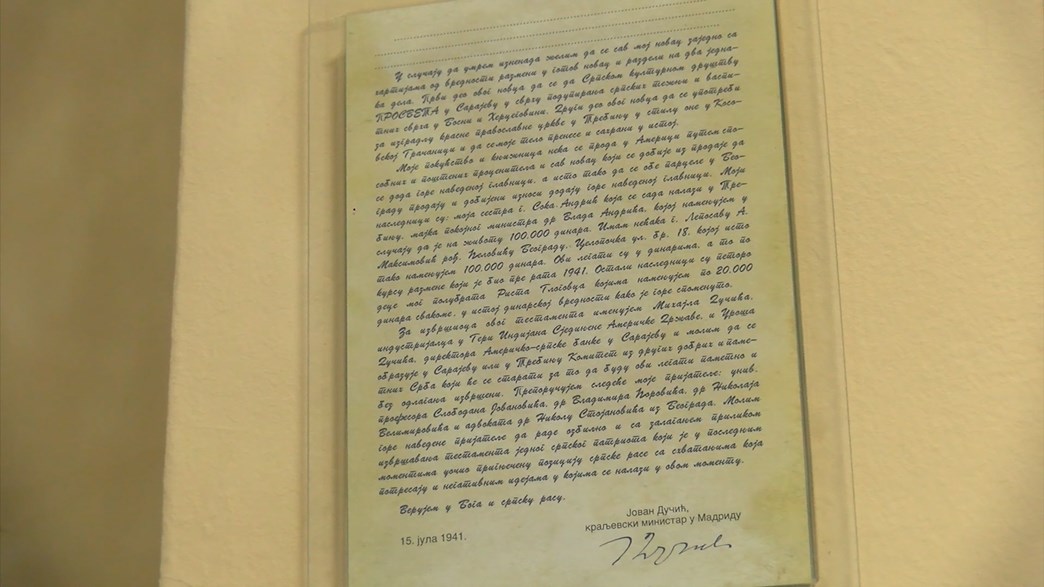 У случају да умрем изненада желим да се сав мој новац заједно са
хартијама од вредности размени у готов новац и раздели на два једна-
ка дела. Први део овог новца да се да Српском културном друштву
ПРОСВЕТА у Сарајеву у сврху подупирања српских тежњи и васпи-
тних сврха у Босни и Херцеговини. Други део овог новца да се употреби
за изградњу красне православне цркве у Требињу у стилу оне у Косо-
вској Грачаници и да се моје тело пренесе и сахрани у истој.
Моје покућство и књижница нека се прода у Америци путем спо-
собних и поштених проценитеља и сав новац који се добије из продаје да
се дода горе наведеној главници, а исто тако да се обе парцеле у Бео-
граду продају и добијени износи додају горе наведеној главници. Моји
наследници су: моја сестра г. Сока Андрић која се сада налази у Тре-
бињу, мајка покојног министра др Влада Андрића, којој намењујем у
случају да је на животу 100.000 динара. Имам нећака г. Лепосаву А.
Максимовић рођ. Ђеловић у Београду, Целопочка ул. бр. 18, којој исто
тако намењујем 100.000 динара. Ови легати су у динарима, а то по
курсу размене који је био пре рата 1941. Остали наследници су петоро
деце мог полубрата Риста Глоговца којима намењујем по 20.000
динара свакоме, у истој динарској вредности како је горе споменуто.
За извршиоца овог тестамента именујем Михајла Дучића,
индустријалца у Гери Индијана Сједињене Америчке Државе, и Уроша
Дучића, директора Америчко-српске банке у Сарајеву и молим да се
образује у Сарајеву или у Требињу Комитет из других добрих и паме-
тних Срба који ће се старати за то да буду ови легати паметно и
без одлагања извршени. Препоручујем следеће моје пријатеље: унив.
професора Слободана Јовановића, др Владимира Ћоровића, др Николаја
Велимировића и адвоката др Николу Стојановића из Београда. Молим
горе наведене пријатеље да раде озбиљно и са залагањем приликом
извршавања тестамента једног српског патриота који је у последњим
моментима уочио пригњечену позицију српске расе са схватањима која
потресају и негативним идејама у којима се налази у овом моменту.
Верујем у Бога и српску расу.
Јован Дучић,
краљевски министар у Мадриду
15. јула 1941.